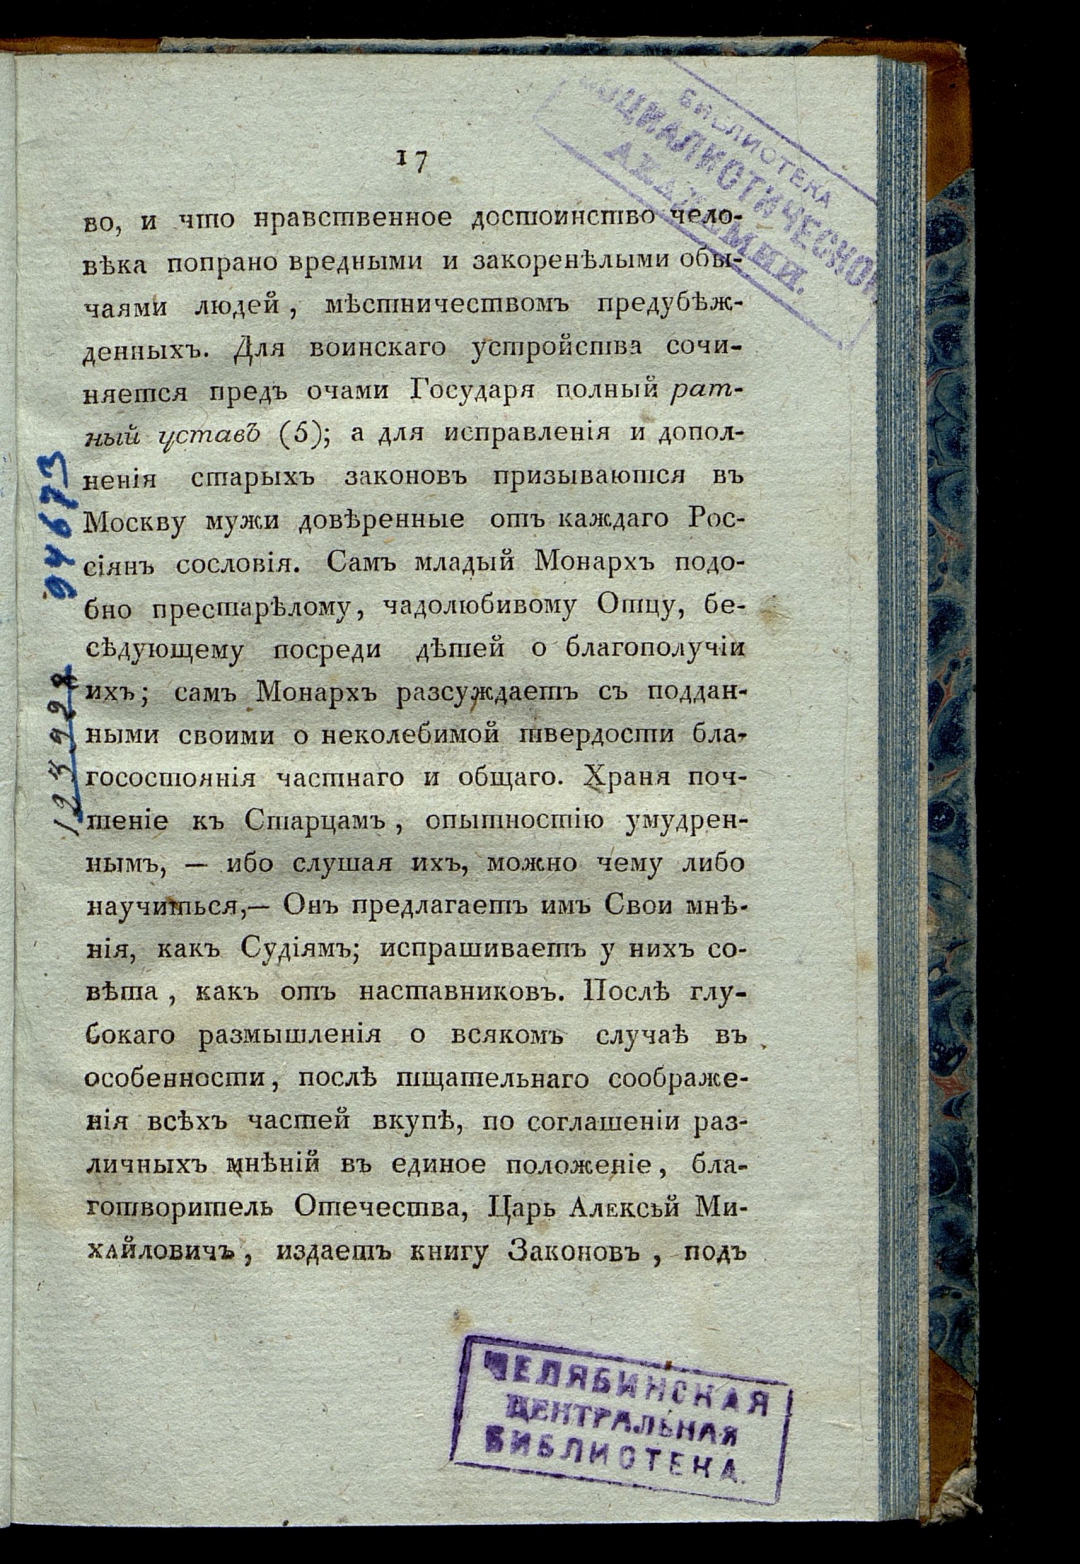 БИБЛИОТЕКА
СОЦИАЛИСТИЧЕСКОЙ
АКАДЕМИИ.
17
во, и что нравственное достоинство чело-
вѣка попрано вредными и закоренѣлыми обы-
чаями людей, мѣстничествомъ предубѣж-
денныхъ. Для воинскаго устройства сочи-
няется предъ очами Государя полный рат-
ный уставъ (5); а для исправленія и допол-
ненія старыхъ законовъ призываются въ
Москву мужи довѣренные отъ каждаго Рос-
сіянъ сословія. Самъ младый Монархъ подо-
бно престарѣлому, чадолюбивому Отцу, бе-
сѣдующему посреди дѣтей о благополучіи
ихъ; самъ Монархъ разсуждаетъ съ поддан-
ными своими о неколебимой твердости бла-
госостоянія частнаго и общаго. Храня поч-
теніе къ Старцамъ, опытностію умудрен-
нымъ, — ибо слушая ихъ, можно чему либо
научиться,— Онъ предлагаетъ имъ Свои мнѣ-
нія, какъ Судіямъ; испрашиваетъ у нихъ со-
вѣта, какъ отъ наставниковъ. Послѣ глу-
бокаго размышленія о всякомъ случаѣ въ
особенности, послѣ тщательнаго соображе-
нія всѣхъ частей вкупѣ, по соглашеніи раз-
личныхъ мнѣній въ единое положеніе, бла-
готворитель Отечества, Царь Алексѣй Ми-
хайловичъ, издаетъ книгу Законовъ, подъ
94673
ЧЕЛЯБИНСКАЯ
ЦЕНТРАЛЬНАЯ
БИБЛИОТЕКА.